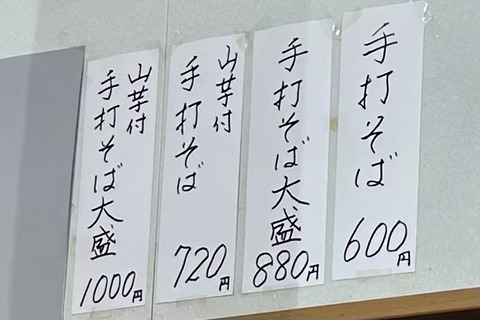 手打そば
600円
手打そば大盛
880円
山芋付
手打そば
720円
山芋付
手打そば大盛
1000円